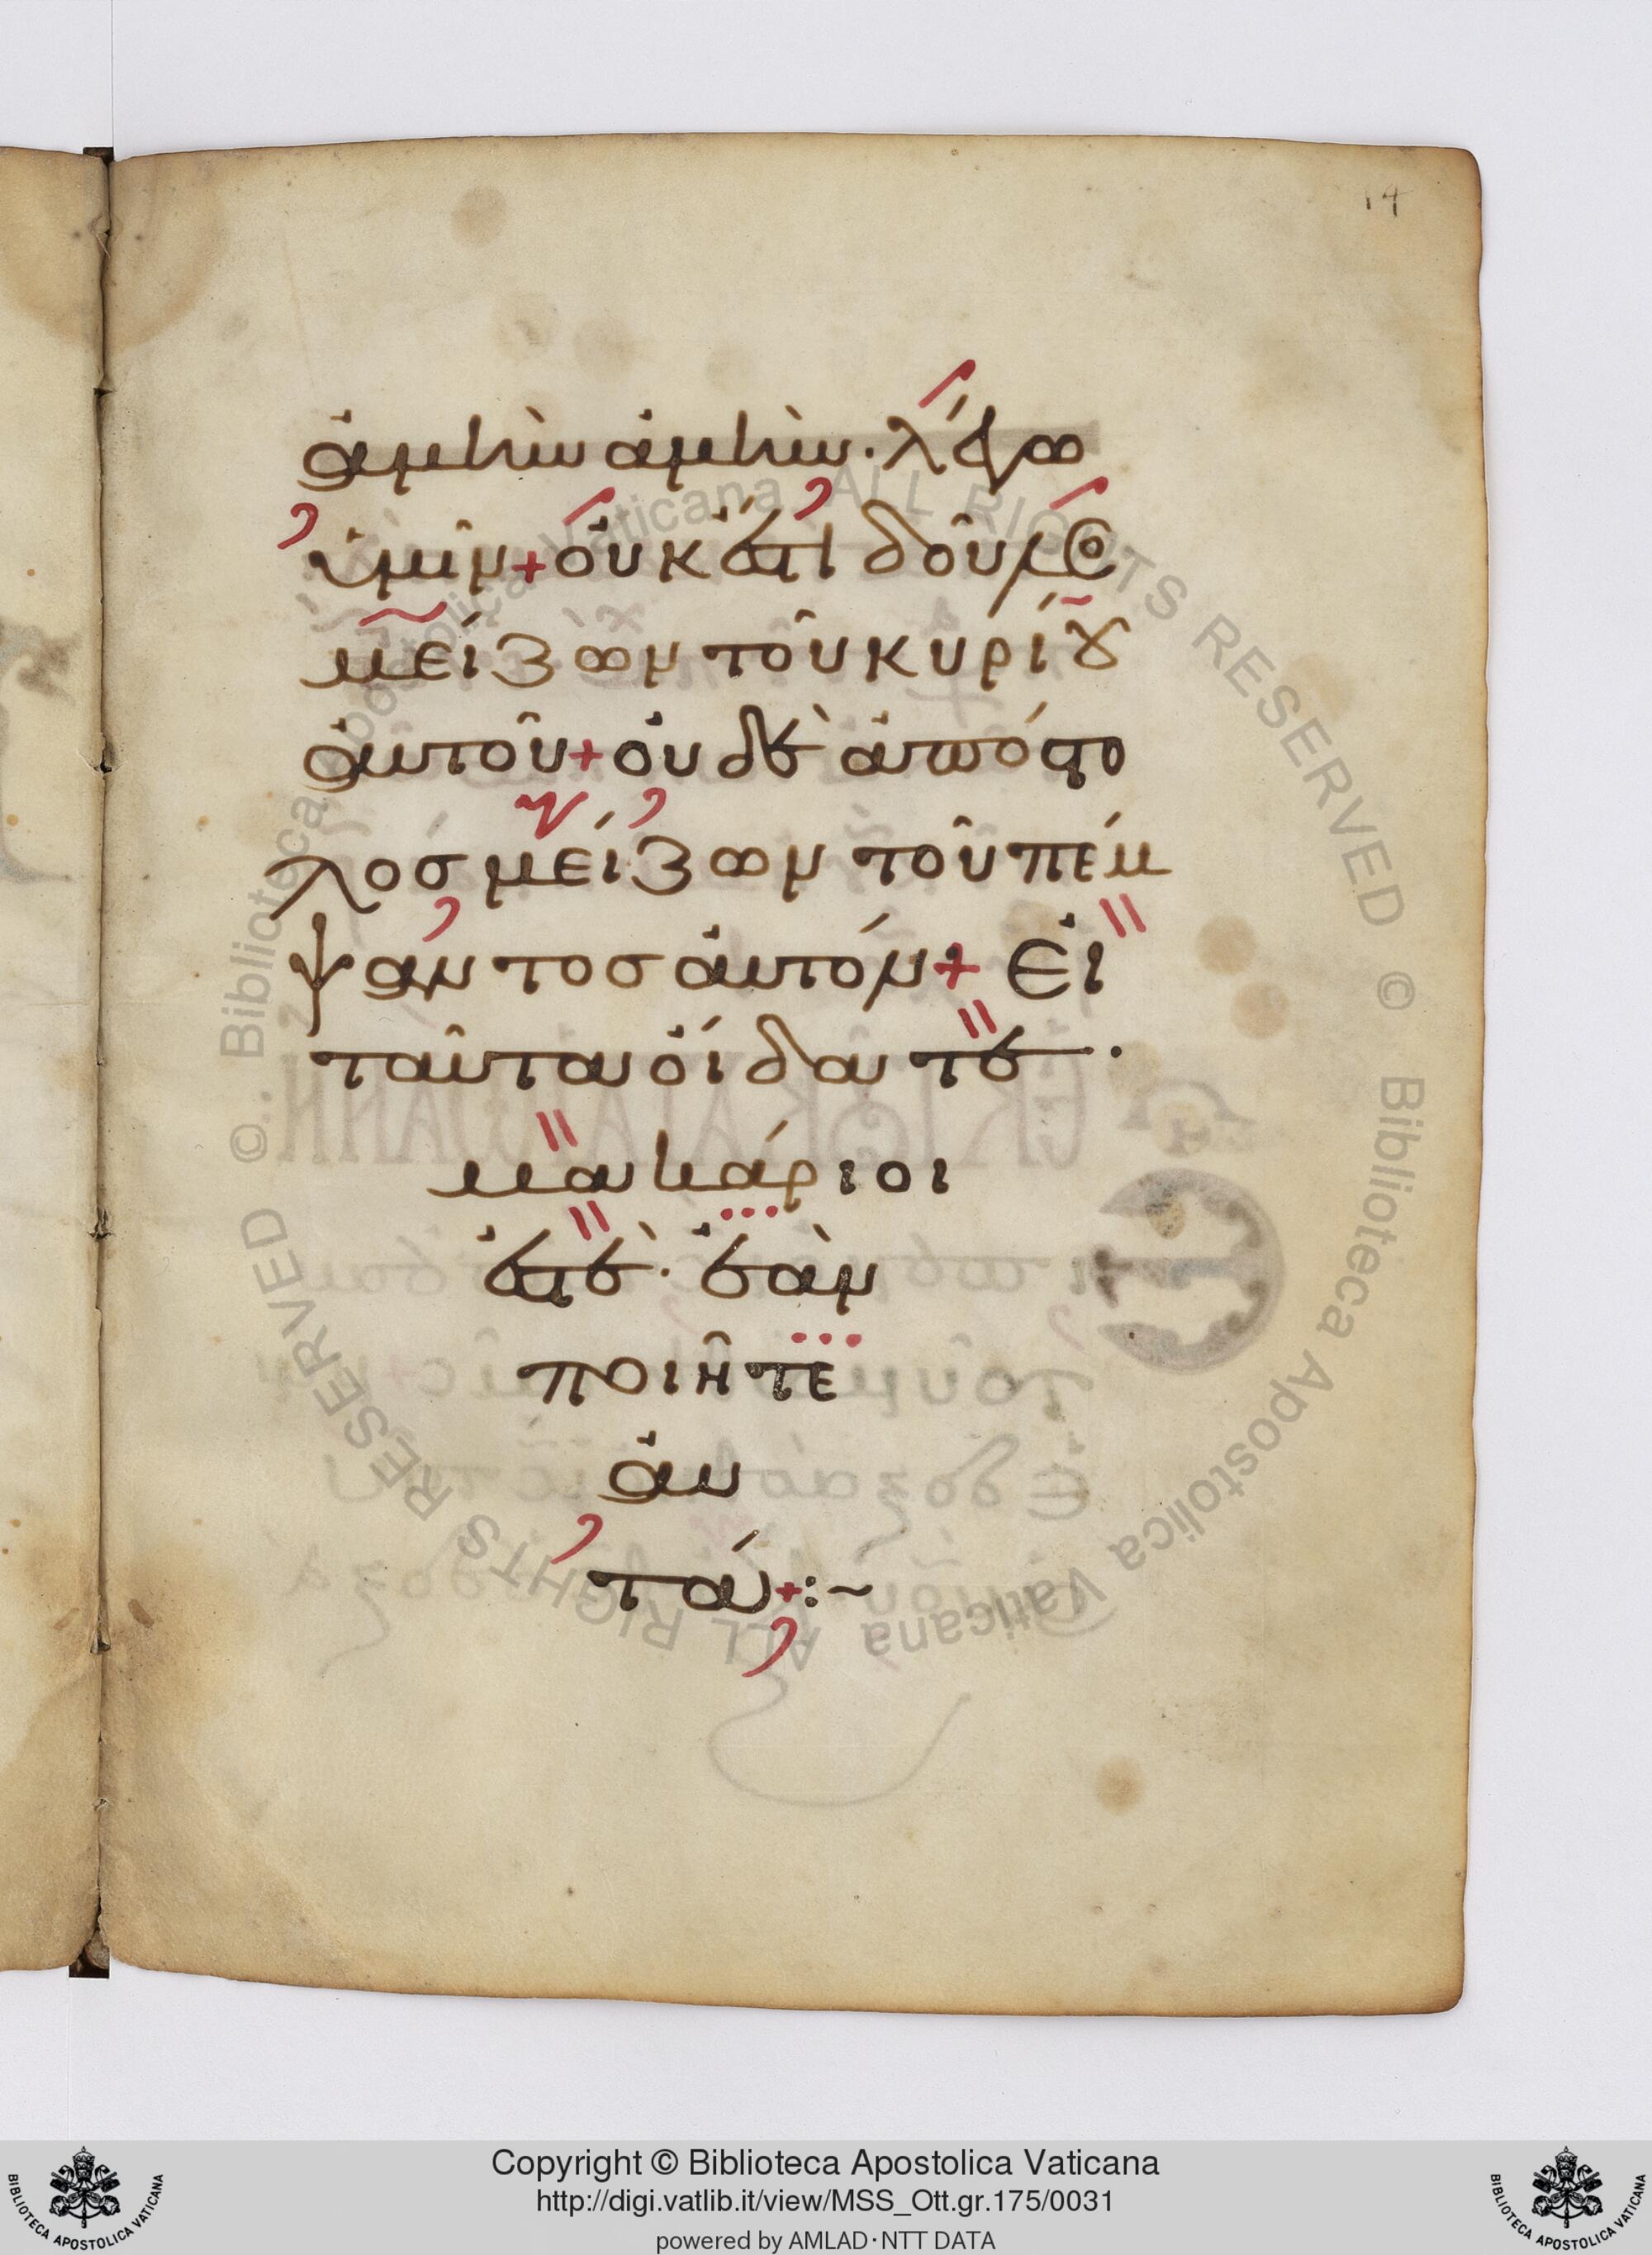 14
ἀμὴν ἀμὴν· λέγω
ὑμῖν + οὐκ ἔστι δοῦλος
μείζων τοῦ κυρίου
αὐτοῦ + οὐδὲ ἀπόστο
λος μείζων τοῦ πέμ
ψαντος αὐτόν + Εἰ
ταῦτα οἴδατε·
μακάριοι
ἐστὲ· ἐὰν
ποιῆτε
αὐ
τά + :~
© Biblioteca Apostolica Vaticana ALL RIGHTS RESERVED © Biblioteca Apostolica Vaticana ALL RIGHTS RESERVED
Copyright © Biblioteca Apostolica Vaticana
http://digi.vatlib.it/view/MSS_Ott.gr.175/0031
powered by AMLAD·NTT DATA
BIBLIOTECA APOSTOLICA VATICANA
BIBLIOTECA APOSTOLICA VATICANA